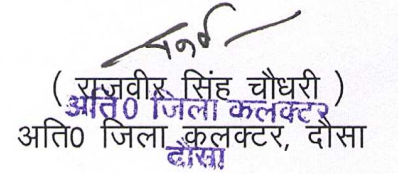 ( राजवीर सिंह चौधरी )
अति0 जिला कलक्टर
अति0 जिला कलक्टर, दौसा
दौसा